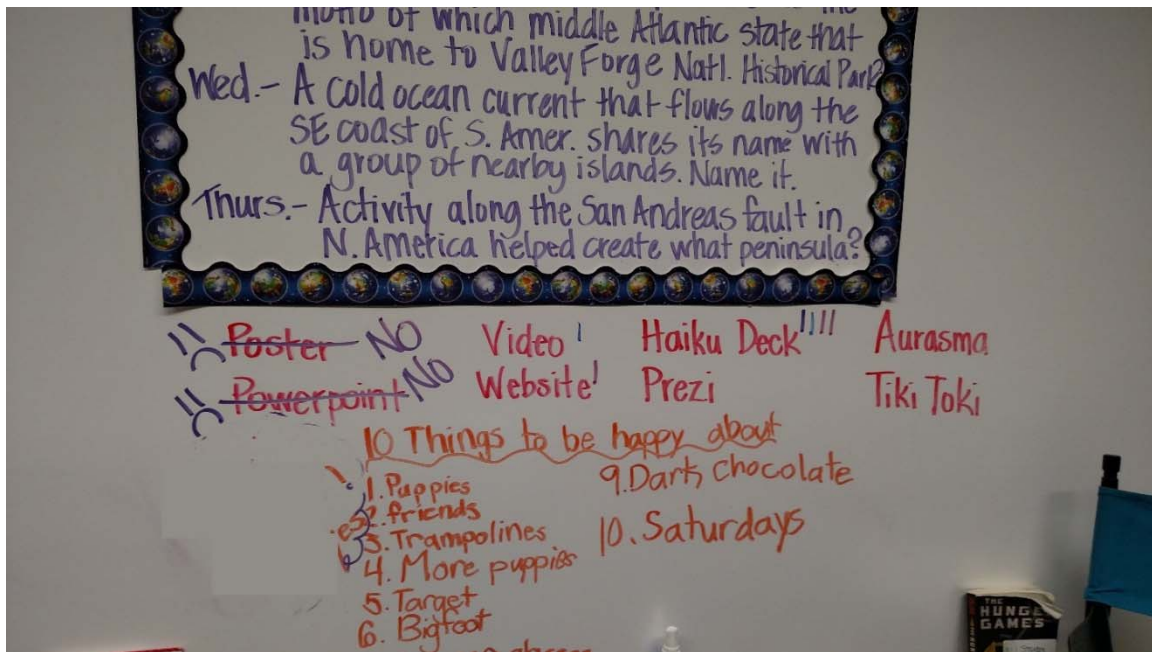 motto of which middle Atlantic state that
is home to Valley Forge Natl. Historical Park?
Wed.- A cold ocean current that flows along the
SE coast of S. Amer. shares its name with
a group of nearby islands. Name it.
Thurs.- Activity along the San Andreas fault in
N. America helped create what peninsula?
Poster NO
Powerpoint NO
Video
Website
Haiku Deck
Prezi
Aurasma
Tiki Toki
10 Things to be happy about
1. Puppies
2. friends
3. Trampolines
4. More puppies
5. Target
6. Bigfoot
9. Dark chocolate
10. Saturdays
THE
HUNGER
GAMES